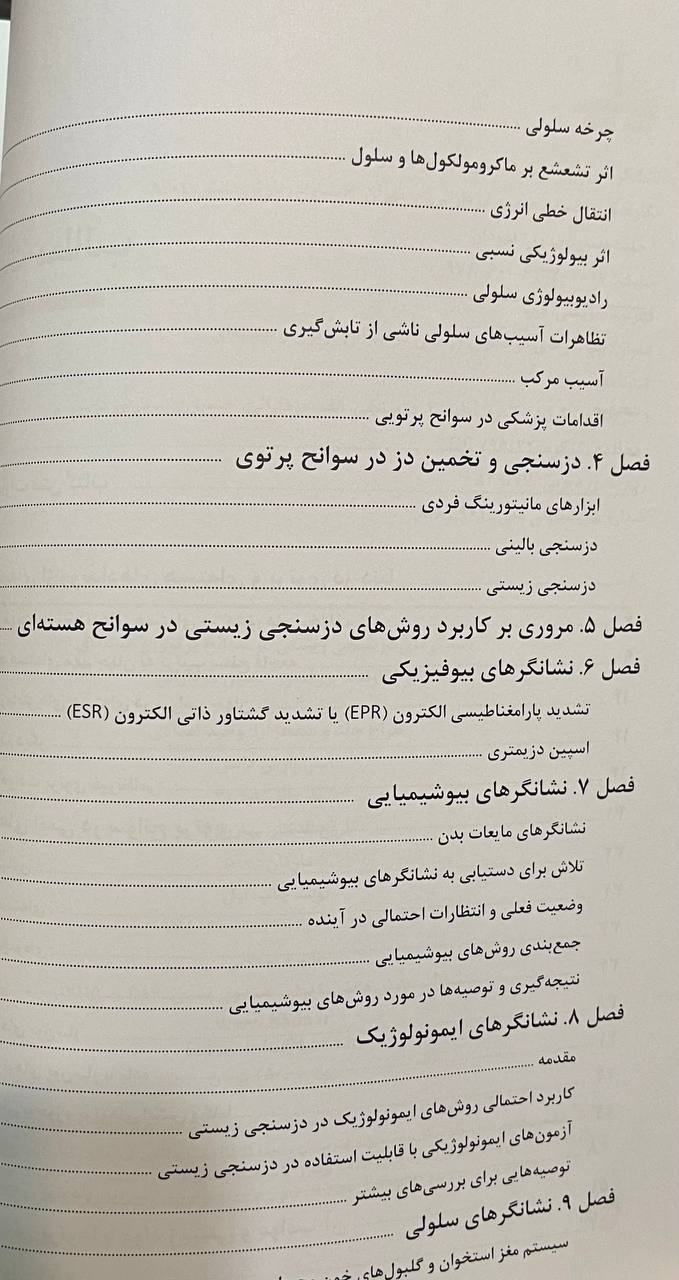 چرخه سلولی
اثر تشعشع بر ماکرومولکول‌ها و سلول
انتقال خطی انرژی
اثر بیولوژیکی نسبی
رادیوبیولوژی سلولی
تظاهرات آسیب‌های سلولی ناشی از تابش‌گیری
آسیب مرکب
اقدامات پزشکی در سوانح پرتویی
فصل ۴. دزسنجی و تخمین دز در سوانح پرتوی
ابزارهای مانیتورینگ فردی
دزسنجی بالینی
دزسنجی زیستی
فصل ۵. مروری بر کاربرد روش‌های دزسنجی زیستی در سوانح هسته‌ای
فصل ۶. نشانگرهای بیوفیزیکی
تشدید پارامغناطیسی الکترون (EPR) یا تشدید گشتاور ذاتی الکترون (ESR)
اسپین دزیمتری
فصل ۷. نشانگرهای بیوشیمیایی
نشانگرهای مایعات بدن
تلاش برای دستیابی به نشانگرهای بیوشیمیایی
وضعیت فعلی و انتظارات احتمالی در آینده
جمع‌بندی روش‌های بیوشیمیایی
نتیجه‌گیری و توصیه‌ها در مورد روش‌های بیوشیمیایی
فصل ۸. نشانگرهای ایمونولوژیک
مقدمه
کاربرد احتمالی روش‌های ایمونولوژیک در دزسنجی زیستی
آزمون‌های ایمونولوژیکی با قابلیت استفاده در دزسنجی زیستی
توصیه‌هایی برای بررسی‌های بیشتر
فصل ۹. نشانگرهای سلولی
سیستم مغز استخوان و گلبول‌های خون